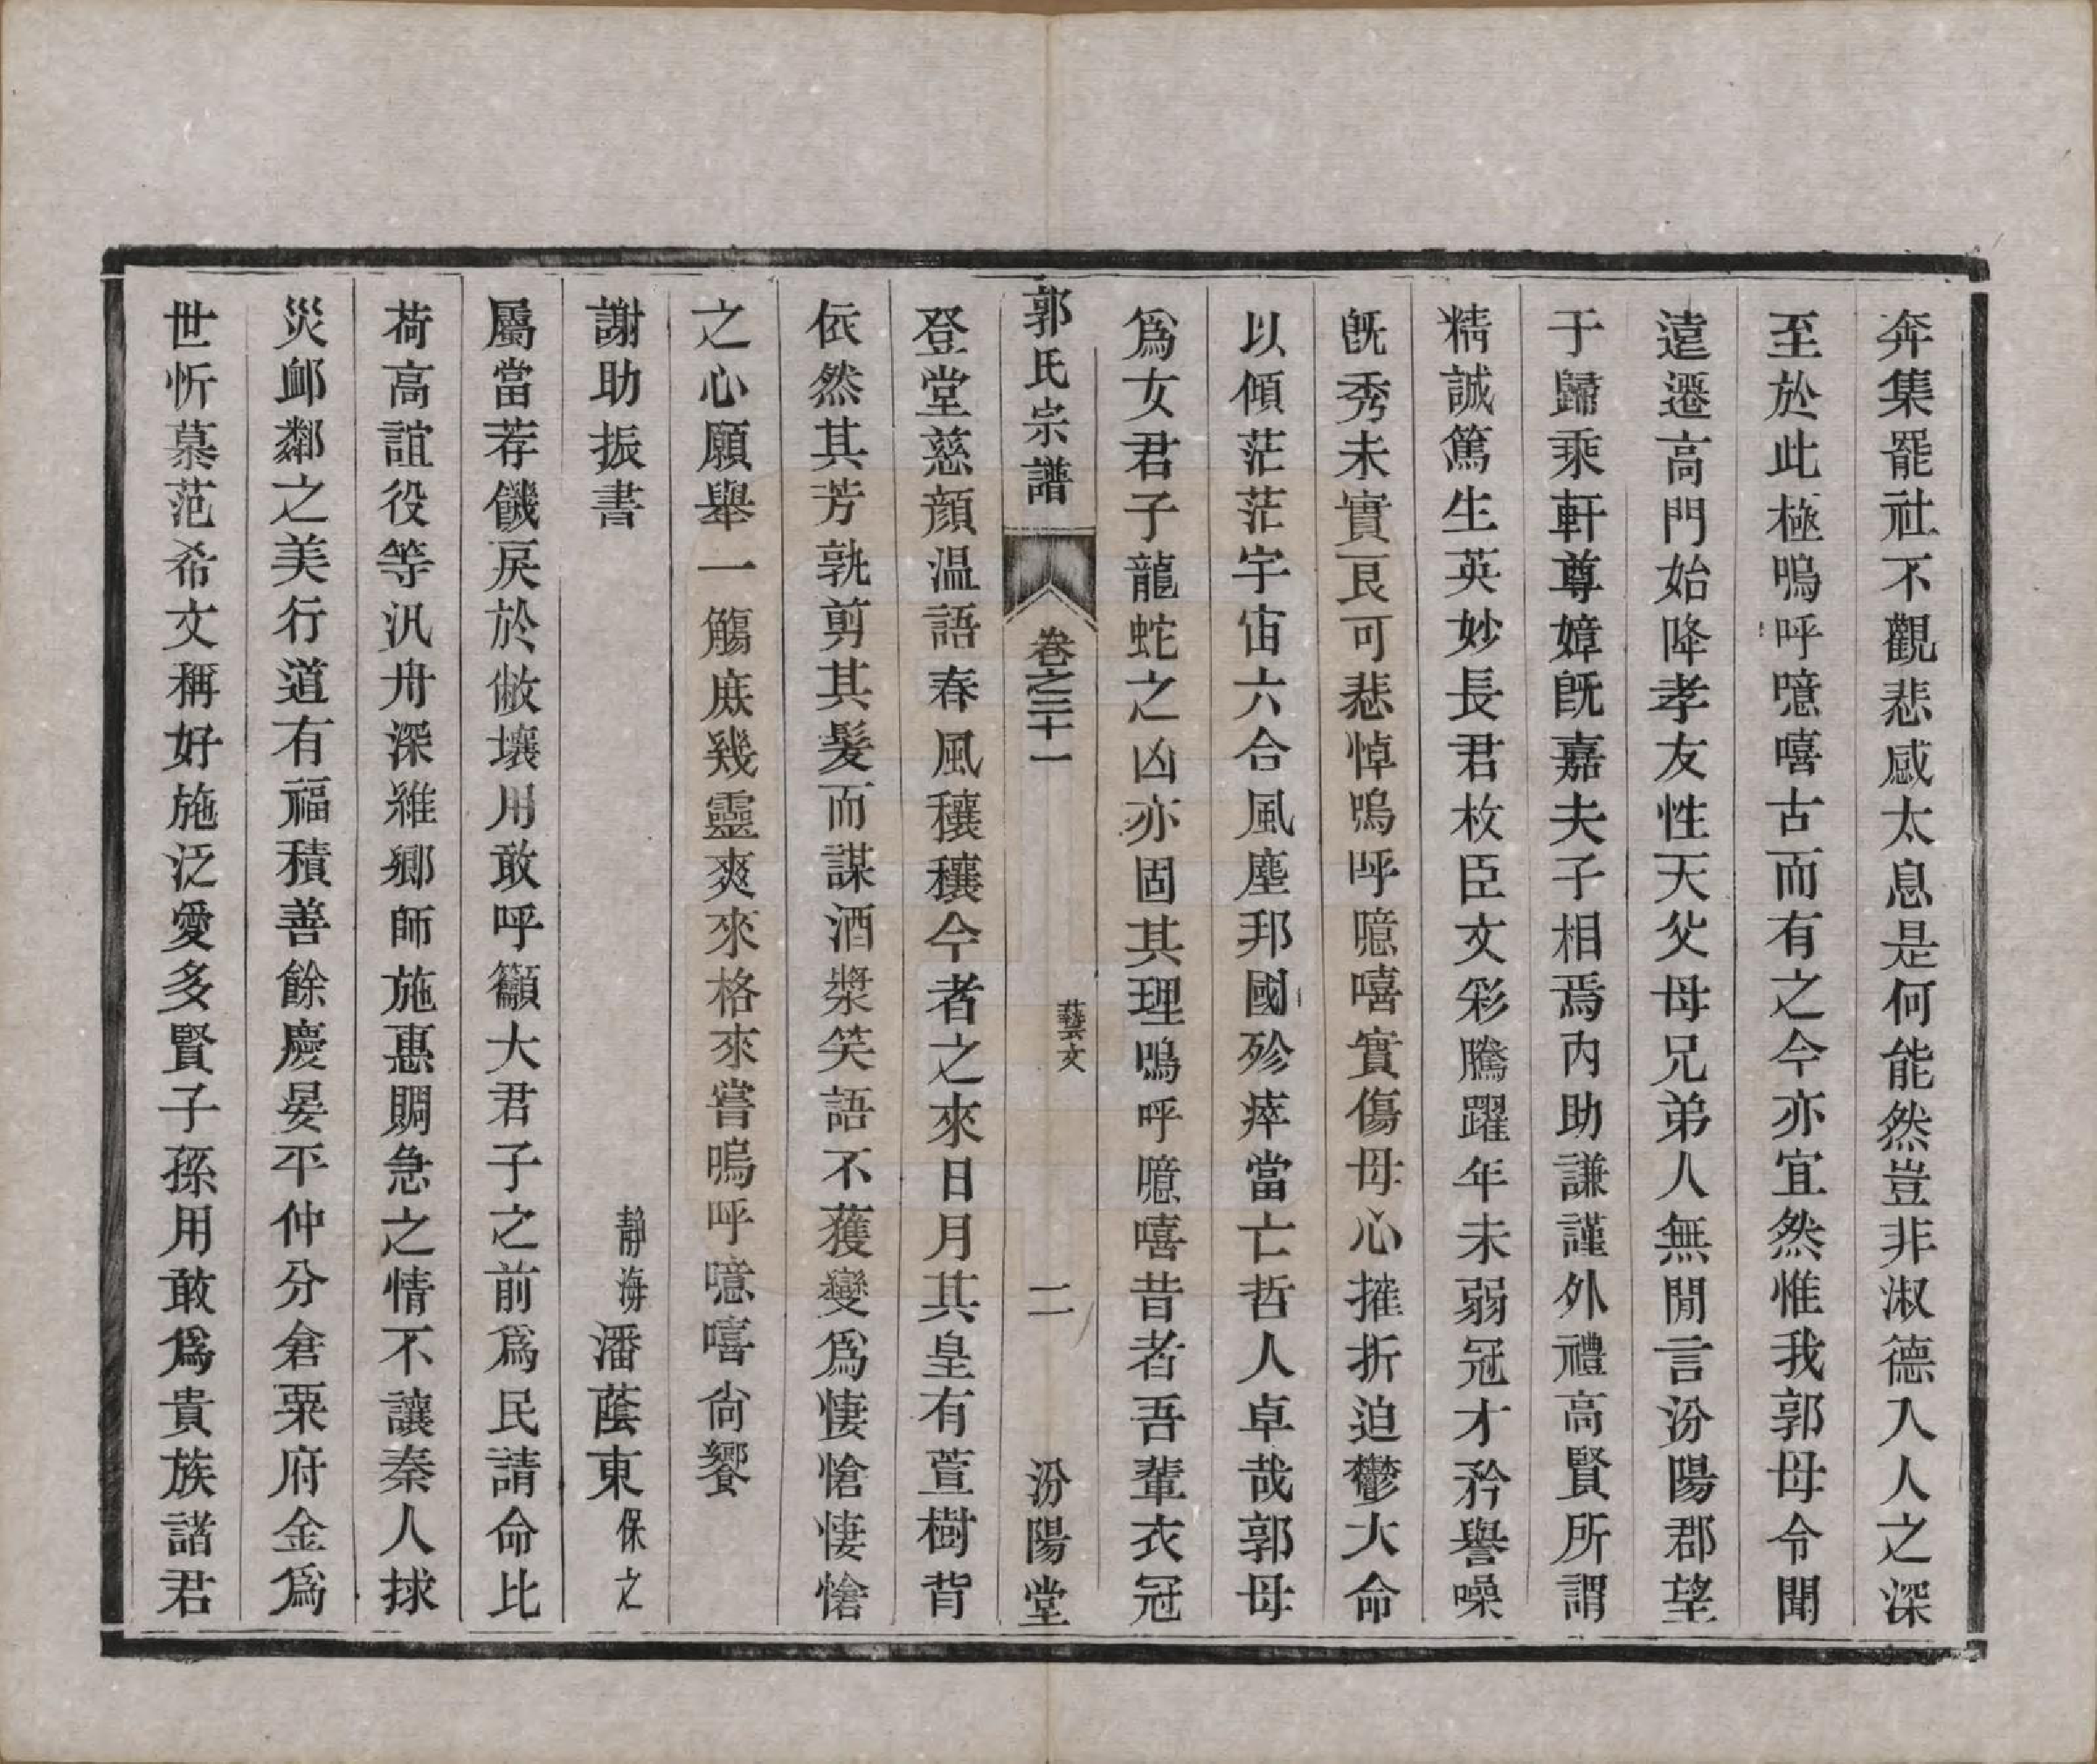 奔集罷社不觀悲感太息是何能然豈非淑德入人之深
至於此極嗚呼噫嘻古而有之今亦宜然惟我郭母令聞
遠遷高門始降孝友性天父母兄弟人無閒言汾陽郡望
于歸乘軒尊嫜旣嘉夫子相焉內助謙謹外禮高賢所謂
精誠篤生英妙長君枚臣文彩騰躍年未弱冠才矜譽噪
旣秀未實艮可悲悼嗚呼噫嘻實傷母心摧折迫鬱大命
以傾茫茫宇宙六合風塵邦國殄瘁當亡哲人卓哉郭母
爲女君子龍蛇之凶亦固其理嗚呼噫嘻昔者吾輩衣冠
郭氏宗譜
卷之二十一
藝文
二
汾陽堂
登堂慈顏溫語春風穰穰今者之來日月其皇有萱樹背
依然其芳孰剪其髮而謀酒漿笑語不獲變爲悽愴悽愴
之心願舉一觴庶幾靈爽來格來嘗嗚呼噫嘻尙饗
謝助振書
靜海潘蔭東保之
屬當荐饑戾於敝壤用敢呼籲大君子之前爲民請命比
荷高誼役等汎舟深維鄉師施惠賙急之情不讓秦人捄
災卹鄰之美行道有福積善餘慶晏平仲分倉粟府金爲
世忻慕范希文稱好施泛愛多賢子孫用敢爲貴族諸君